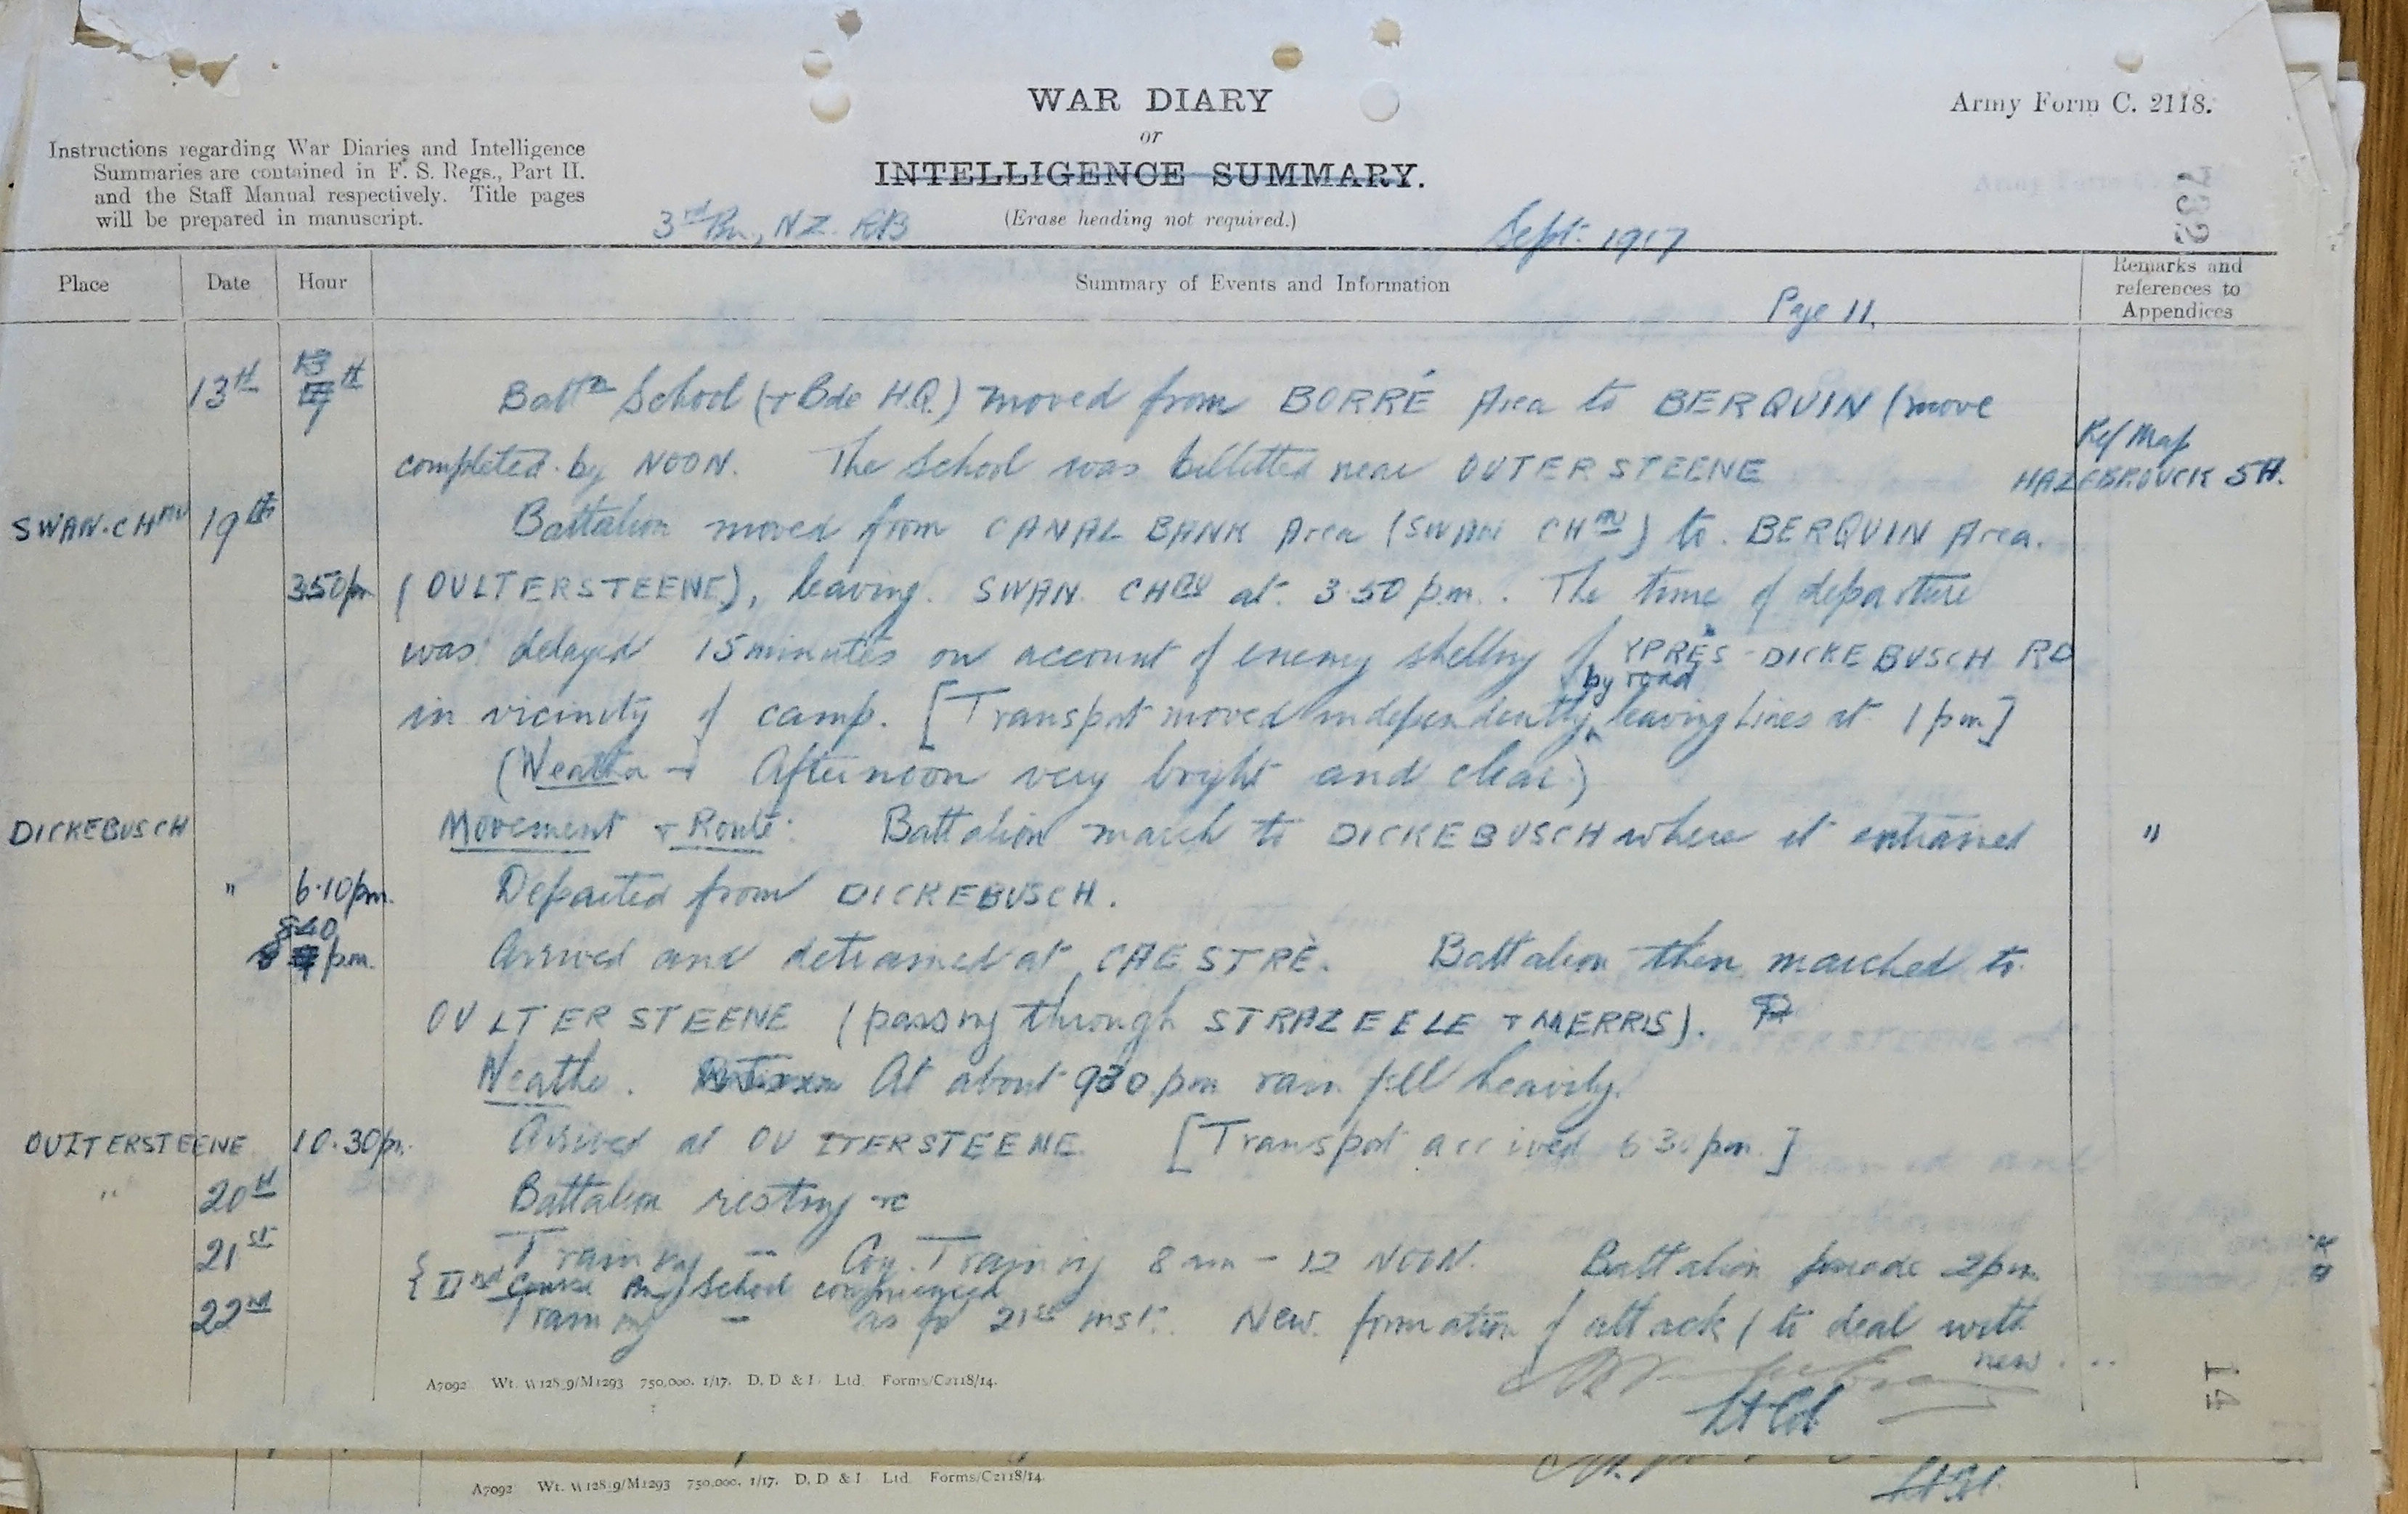 WAR DIARY
or
INTELLIGENCE SUMMARY.
(Erase heading not required.)
Army Form C. 2118.
Instructions regarding War Diaries and Intelligence
Summaries are contained in F. S. Regs., Part II.
and the Staff Manual respectively. Title pages
will be prepared in manuscript.
3rd Bn., N.Z. RB
Sept. 1917
732
Place Date Hour Summary of Events and Information Remarks and references to Appendices
Page 11.
13th Battn School (+ Bde H.Q.) moved from BORRÉ Area to BERQUIN (move
completed by NOON. The School was billetted near OUTERSTEENE
Ref Map
HAZEBROUCK 5A.
SWAN. CHAU 19th Battalion moved from CANAL BANK Area (SWAN CHAU) to BERQUIN Area.
3.50pm (OULTERSTEENE), leaving SWAN CHAU at 3.50 p.m. The time of departure
was delayed 15 minutes on account of enemy shelling of YPRES-DICKEBUSCH RD
in vicinity of camp. [Transport moved independently by road leaving Lines at 1 pm]
(Weather - Afternoon very bright and clear)
DICKEBUSCH Movement & Route: Battalion march to DICKEBUSCH where it entrained "
" 6.10pm. Departed from DICKEBUSCH.
8.40 pm. Arrived and detrained at CAESTRÈ. Battalion then marched to
OULTERSTEENE (passing through STRAZEELE & MERRIS).
Weather. At about 930 pm rain fell heavily.
OUITERSTEENE 10.30pm. Arrived at OUITERSTEENE [Transport arrived 6 30 pm.]
" 20th Battalion resting &c
21st Training - Coy. Training 8 am - 12 NOON. Battalion parade 2pm
{ IInd Course School commenced
22nd Training - as for 21st inst. New formation of attack (to deal with
new ...
Lt Col
14
A7092 Wt. W128.9/M1293 750,000. 1/17. D. D & L Ltd. Forms/C2118/14.
A7092 Wt. W128.9/M1293 750,000. 1/17. D. D & L Ltd. Forms/C2118/14.
Lt Col.